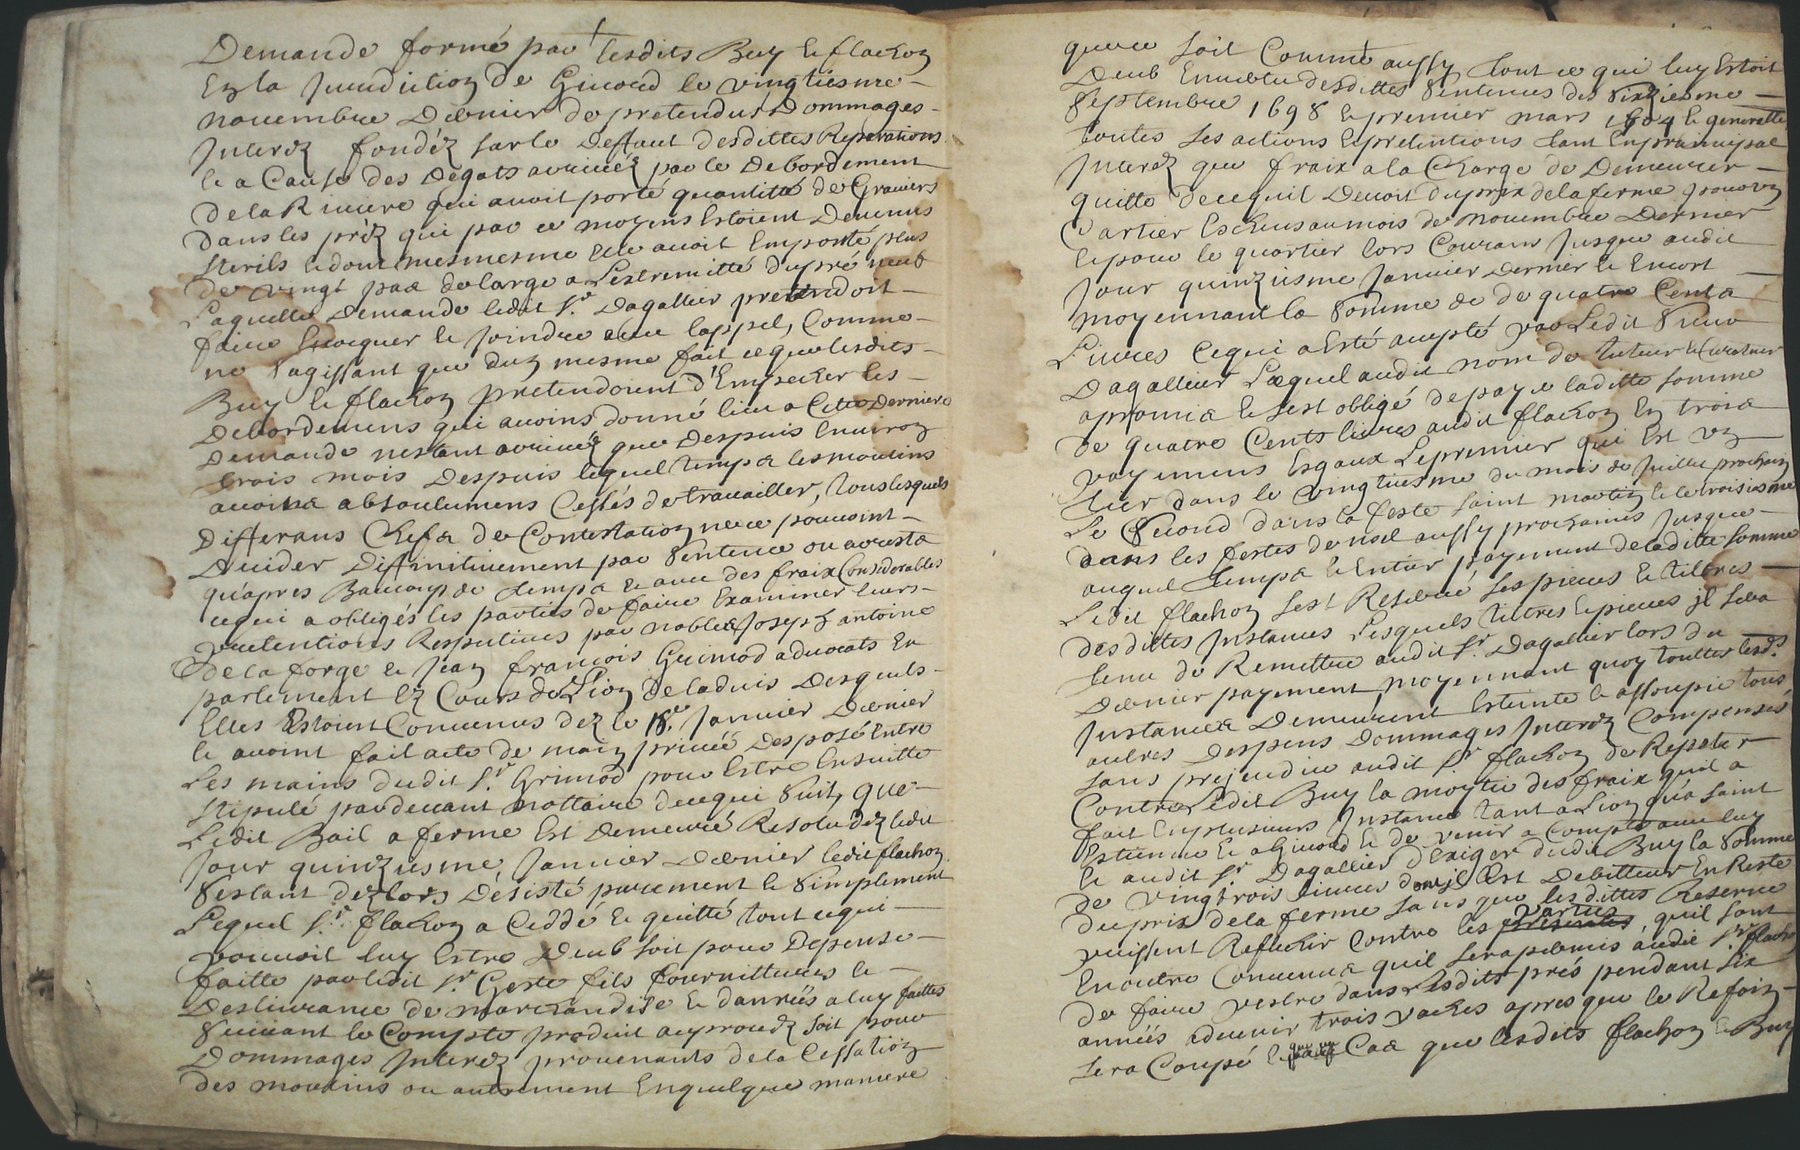 Demande formé par lesdits Buy & flachon
En la Jurisdiction de Givord le vingtiesme
novembre Dernier de pretendus Dommages
Interez fondéz sur le Deffaut desdittes Reparations
& a Cause des Degats arrivéz par le Debordement
de la Riviere qui avoit porté quantité de Graviers
dans les préz qui par ce moyens Estoient Devenus
sterils & dont mesmesme elle avoit Emporté plus
de vingt pas de large a L'extremitté du pré neuf
Laquelle Demande ledit Sr. Dagallier pretendoit
faire Evoquer & Joindre avec lappel, Comme
ne sagissant que dun mesme fait ce que lesdits
Buy & flachon pretendoient d'Empecher les
Debordemens qui avoins donné lieu a Cette Derniere
Demande nestant arrivéz que Despuis Environ
trois mois Despuis lequel temps les moulins
avoins absoulumens Cessés de travailler, tous lesquels
Differans Chefs de Contestation ne ce pouvoint
Decider Diffinitivement par Sentence ou arrests
qu'apres Beaucoup de temps & avec des fraix Considerables
ce qui a obligés les parties de faire Examiner leurs
pretentions Respectives par nobles Joseph antoine
de la forge & Jean françois Grimod advocats En
parlement Ez Cours de Lion de ladvis Desquels
Elles Estoient Convenus dez le 15e. Janvier Dernier
& avoint fait acte de main privéé Desposé Entre
Les mains dudit Sr. Grimod pour Estre Ensuitte
stipulé pardevant nottaire de ce qui suit, que
Ledit Bail a ferme Est Demeuré Resolu dez ledit
Jour quinziesme Janvier Dernier ledit flachon
sestant dez lors Désisté purement & simplement
Lequel Sr. flachon a Ceddé & quitté tout ce qui
pouvoit luy Estre Deub soit pour Depense
faitte par ledit Sr. Geste fils fournittures &
Deslivrance de marchandise & danréés a luy faittes
suivant le Compte produit au procez soit pour
Dommages Interez provenants de la Cessation
des moulins ou autrement En quelque maniere
que ce soit Comme aussy tout ce qui luy Estoit
Deub En vertu desdittes Sentences des Sixziesme
Septembre 1698 & premier mars 1704 & generallem
toutes ses actions & pretentions tant En principal
Interez que fraix a la Charge de Demeurer
quitte de ce quil Devoit du prix de la ferme pour un
Cartier Escheus au mois de novembre Dernier
& pour le quartier lors Courans Jusque audit
Jour quinziesme Janvier Dernier & Encort
moyennant la Somme de de quatre Cents
Livres Ce qui a Esté accepté par Ledit Sieur
Dagallier Lequel audit nom de tuteur & Curateur
a promis & s'est obligé de payer laditte somme
de quatre Cents livres audit flachon En trois
payemens Esgaux Le premier qui Est un
tier dans le vingtiesme du mois de Juillet prochain
Le Second dans la feste saint martin & le troisiesme
dans les festes de noel aussy prochaines Jusque
auquel temps & Entier payement de laditte somme
Ledit flachon sest Reservé ses pieces & tiltres
desdittes Instances Lesquels tiltres & pieces jl sera
tenu de Remettre audit Sr. Dagallier lors du
Dernier payement moyennant quoy touttes lesds.
Instances Demeurent Esteinte & assoupie tous
autres Despens Dommages Interez Compensés
sans prejudice audit Sr. flachon de Repeter
Contre Ledit Buy la moytie des fraix quil a
fait En plusieurs Instance tant a Lion qu'a saint
Estienne & a Givord & de venir a Compte avec luy
& audit Sr. Dagallier d'Exiger dudit Buy la Somme
de vingtrois livres dont jl Est Debitteur En Reste
du prix de la ferme sans que lesdittes Reserve
puissent Reflechir Contre les presentes parties quil sont
En outre Convenus quil sera permis audit Sr. flachon
de faire paistre dans lesdits prés pendant six
annéés advenir trois vaches apres que le Refoin
sera Coupé & En Cas que lesdits flachon & Buy